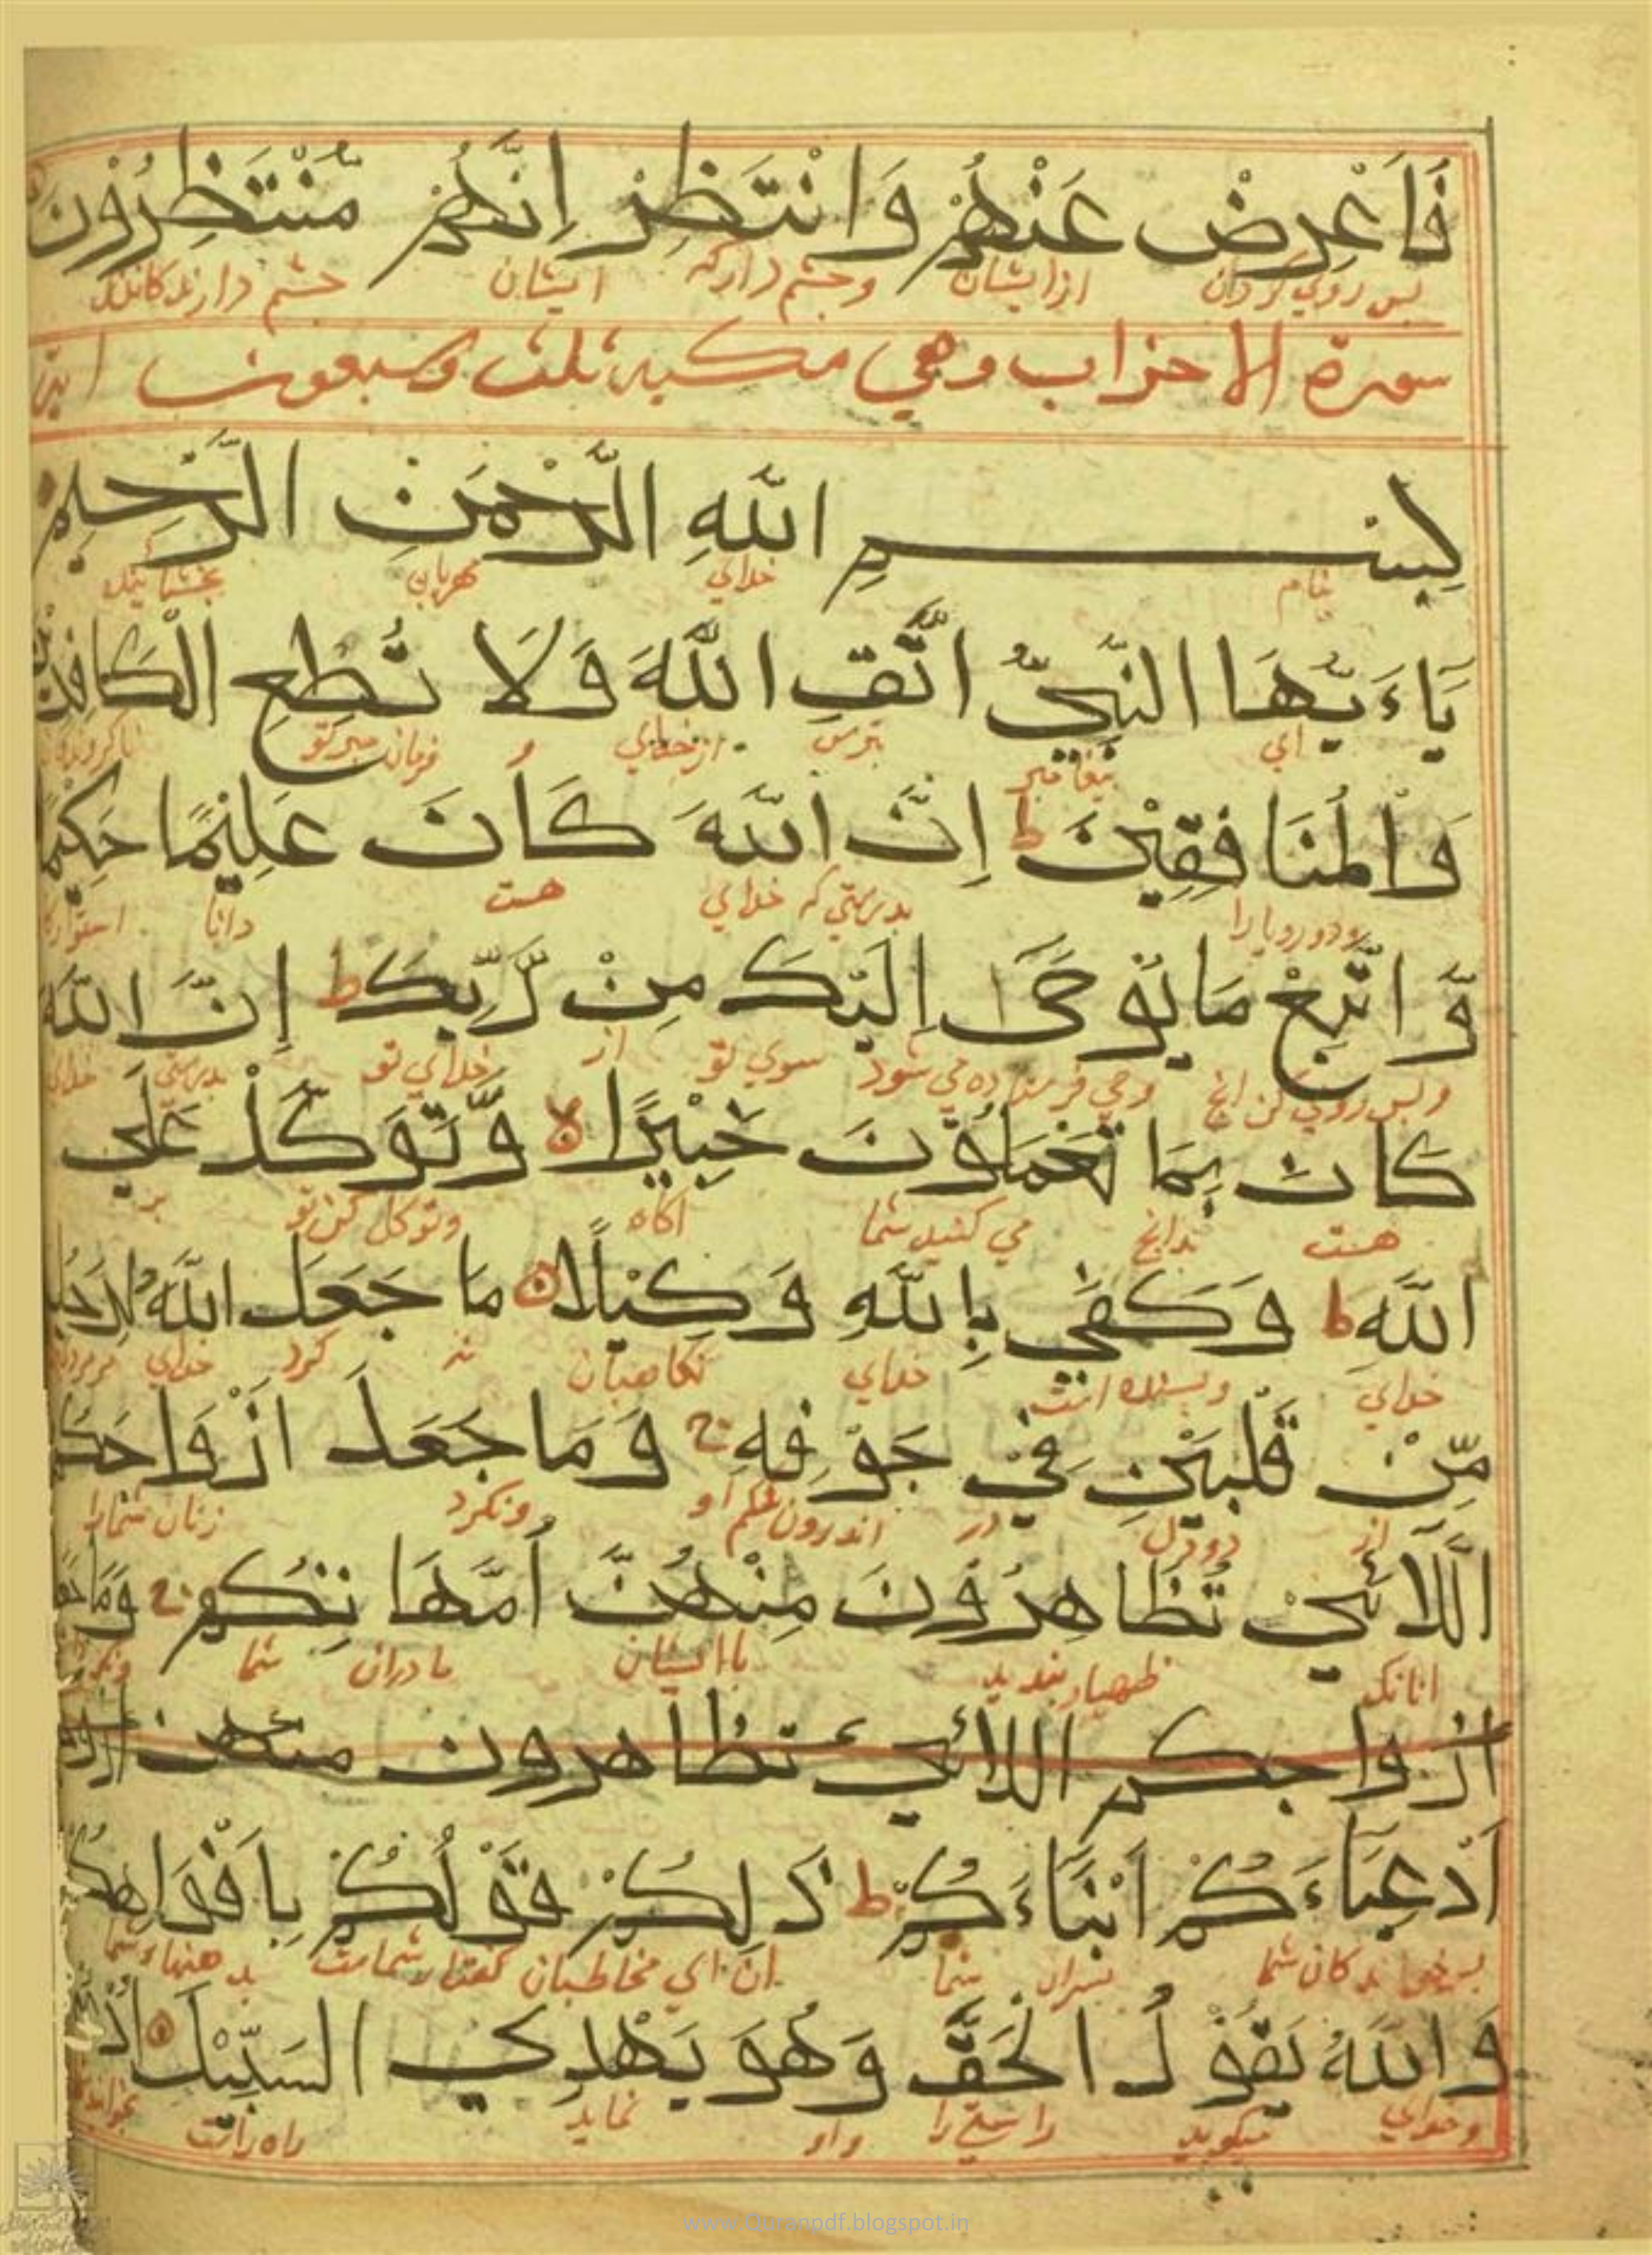 فَاَعْرِضْ عَنْهُمْ وَانْتَظِرْ اِنَّهُمْ مُّنْتَظِرُوْنَ
پس روي گردان از ایشان و چشم دار که ایشان چشم دارندکانند
سورة الاحزاب وهي مكية ثلث وسبعون اية
بِسْمِ اللّٰهِ الرَّحْمٰنِ الرَّحِيْمِ
بنام خداي مهربان بخشاینده
يَاءَيُّهَا النَّبِيُّ اتَّقِ اللّٰهَ وَلَا تُطِعِ الْكَافِرِيْنَ
اي پیغامبر بترس از خداي و فرمان مبر تو
وَالْمُنَافِقِيْنَ ط اِنَّ اللّٰهَ كَانَ عَلِيْمًا حَكِيْمًا
ودورویانرا بدرستي که خداي هست دانا
وَّاتَّبِعْ مَا يُوْحٰى اِلَيْكَ مِنْ رَّبِّكَ ط اِنَّ اللّٰهَ
وپس روي کن انچ وحي فرستاده مي شود سوي تو از خداي تو بدرستي خداي
كَانَ بِمَا تَعْمَلُوْنَ خَبِيْرًا لا وَّتَوَكَّلْ عَلَي
هست بدانچ مي کنید شما اکاه وتوکل کن تو بر
اللّٰهِ ط وَكَفٰي بِاللّٰهِ وَكِيْلًا مَا جَعَلَ اللّٰهُ لِرَجُلٍ
خداي وبسنده است خداي نکاهبان نه کرد خداي
مِّنْ قَلْبَيْنِ فِيْ جَوْفِهِ ج وَمَا جَعَلَ اَزْوَاجَكُمُ
از دو دل در اندرون شکم او ونکرد زنان شمارا
اللَّائِيْ تُظَاهِرُوْنَ مِنْهُنَّ اُمَّهَاتِكُمْ ج وَمَا جَعَلَ
انانک ظهار بندید با ایشان مادران شما
ازواجكم اللائي تظاهرون منهن
اَدْعِيَاءَكُمْ اَبْنَاءَكُمْ ط ذٰلِكُمْ قَوْلُكُمْ بِاَفْوَاهِكُمْ
پسرخواندکان شما پسران شما ان اي مخاطبان گفتار شماست بدهنهاء شما
وَاللّٰهُ يَقُوْلُ الْحَقَّ وَهُوَ يَهْدِي السَّبِيْلَ
وخداي میکوید راستي را واو نماید راه راست
www.Quranpdf.blogspot.in